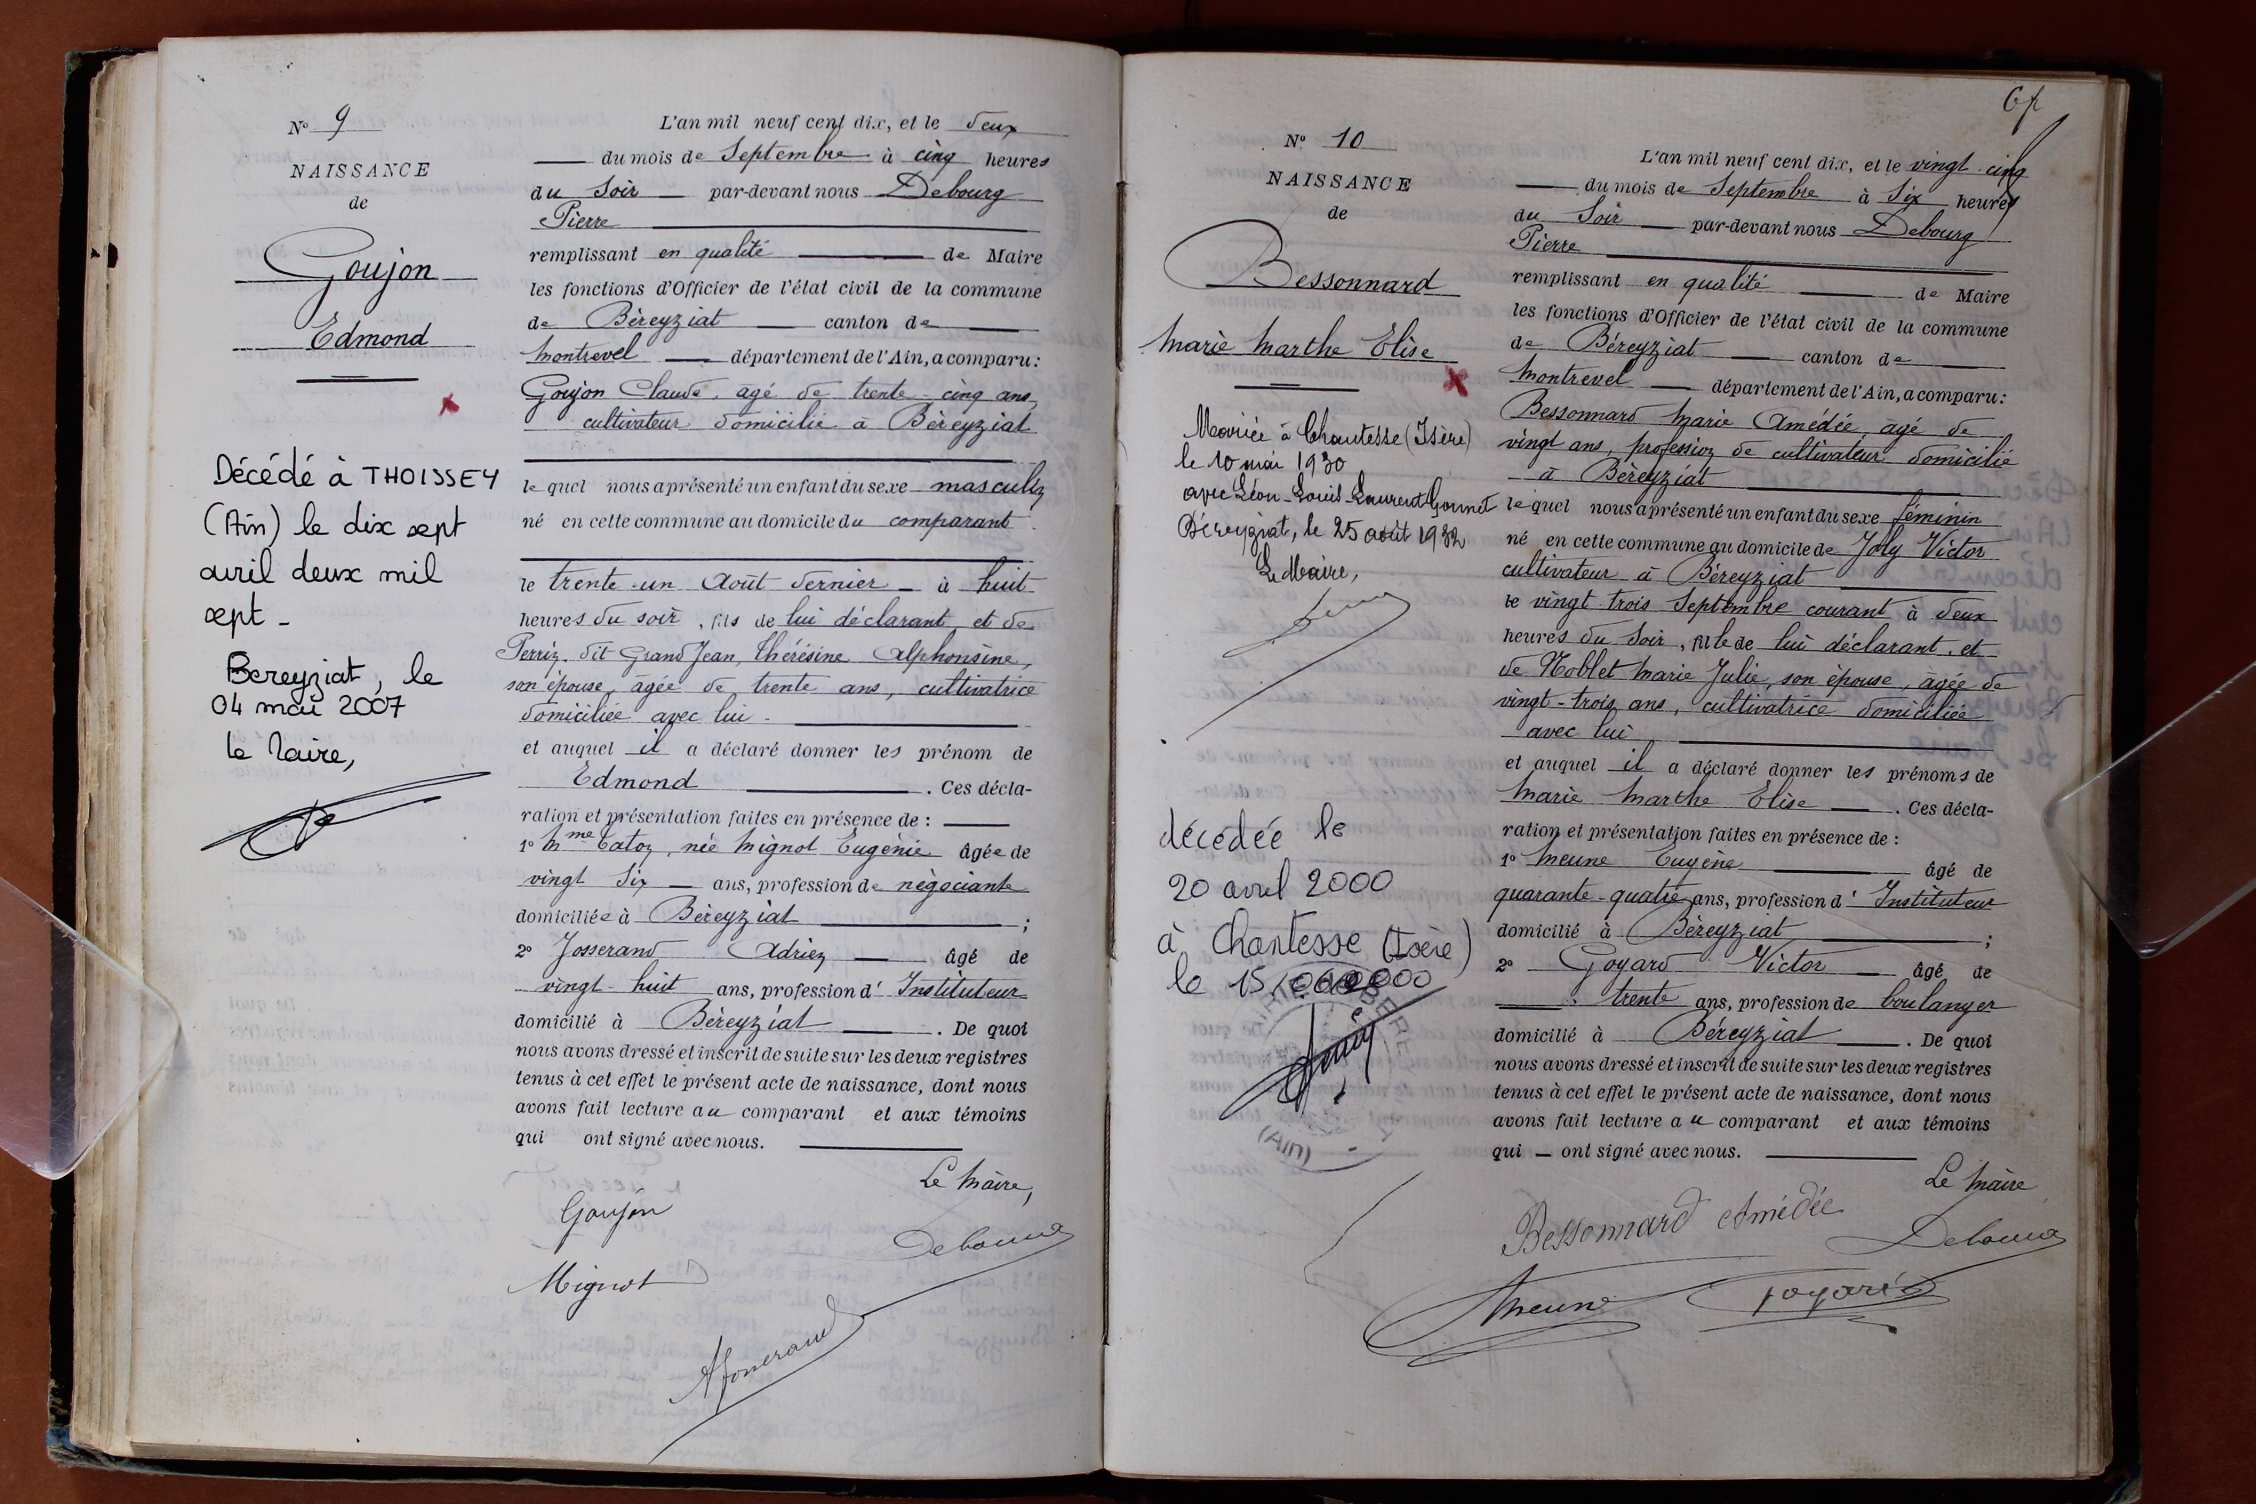 Nº 9
NAISSANCE
de
Goujon
Edmond
Décédé à THOISSEY
(Ain) le dix sept
avril deux mil
sept -
Bereyziat, le
04 mai 2007
le Maire,
L'an mil neuf cent dix, et le deux
du mois de Septembre à cinq heures
du Soir par-devant nous Debourg
Pierre
remplissant en qualité de Maire
les fonctions d'Officier de l'état civil de la commune
de Béreyziat canton de
Montrevel département de l'Ain, a comparu:
Goujon Claude, agé de trente-cinq ans,
cultivateur domicilié à Béreyziat
lequel nous a présenté un enfant du sexe masculin
né en cette commune au domicile du comparant.
le trente-un Août dernier à huit
heures du soir, fils de lui déclarant et de
Perrin dit Grand Jean, Thérésine Alphonsine,
son épouse, âgée de trente ans, cultivatrice
domiciliée avec lui -
et auquel il a déclaré donner les prénom de
Edmond . Ces décla-
ration et présentation faites en présence de :
1º Mme Catoz, née Mignot Eugénie âgée de
vingt six ans, profession de négociante
domiciliée à Béreyziat ;
2º Josserand Adrien âgé de
vingt-huit ans, profession d'Instituteur
domicilié à Béreyziat . De quoi
nous avons dressé et inscrit de suite sur les deux registres
tenus à cet effet le présent acte de naissance, dont nous
avons fait lecture au comparant et aux témoins
qui ont signé avec nous.
Le Maire,
Goujon
Debourg
Mignot
A Josserand
Nº 10
NAISSANCE
de
Bessonnard
Marie Marthe Elise
Mariée à Chantesse (Isère)
le 10 mai 1930
avec Léon-Louis-Laurent Gonnet
Béreyziat, le 25 août 1932
Le Maire,
décédée le
20 avril 2000
à Chantesse (Isère)
le 15
(Ain)
L'an mil neuf cent dix, et le vingt-cinq
du mois de Septembre à Six heures
du Soir par-devant nous Debourg
Pierre
remplissant en qualité de Maire
les fonctions d'Officier de l'état civil de la commune
de Béreyziat canton de
Montrevel département de l'Ain, a comparu:
Bessonnard Marie Amédée, agé de
vingt ans, profession de cultivateur domicilié
à Béreyziat
lequel nous a présenté un enfant du sexe féminin
né en cette commune au domicile de Joly Victor
cultivateur à Béreyziat
le vingt-trois Septembre courant à deux
heures du Soir, fille de lui déclarant, et
de Noblet Marie Julie, son épouse, âgée de
vingt-trois ans, cultivatrice domiciliée
avec lui
et auquel il a déclaré donner les prénoms de
Marie Marthe Elise . Ces décla-
ration et présentation faites en présence de :
1º Meune Eugène âgé de
quarante-quatre ans, profession d'Instituteur
domicilié à Béreyziat ;
2º Goyard Victor âgé de
trente ans, profession de boulanger
domicilié à Béreyziat . De quoi
nous avons dressé et inscrit de suite sur les deux registres
tenus à cet effet le présent acte de naissance, dont nous
avons fait lecture au comparant et aux témoins
qui ont signé avec nous.
Le Maire
Bessonnard Amédée
Debourg
Meune
Goyard